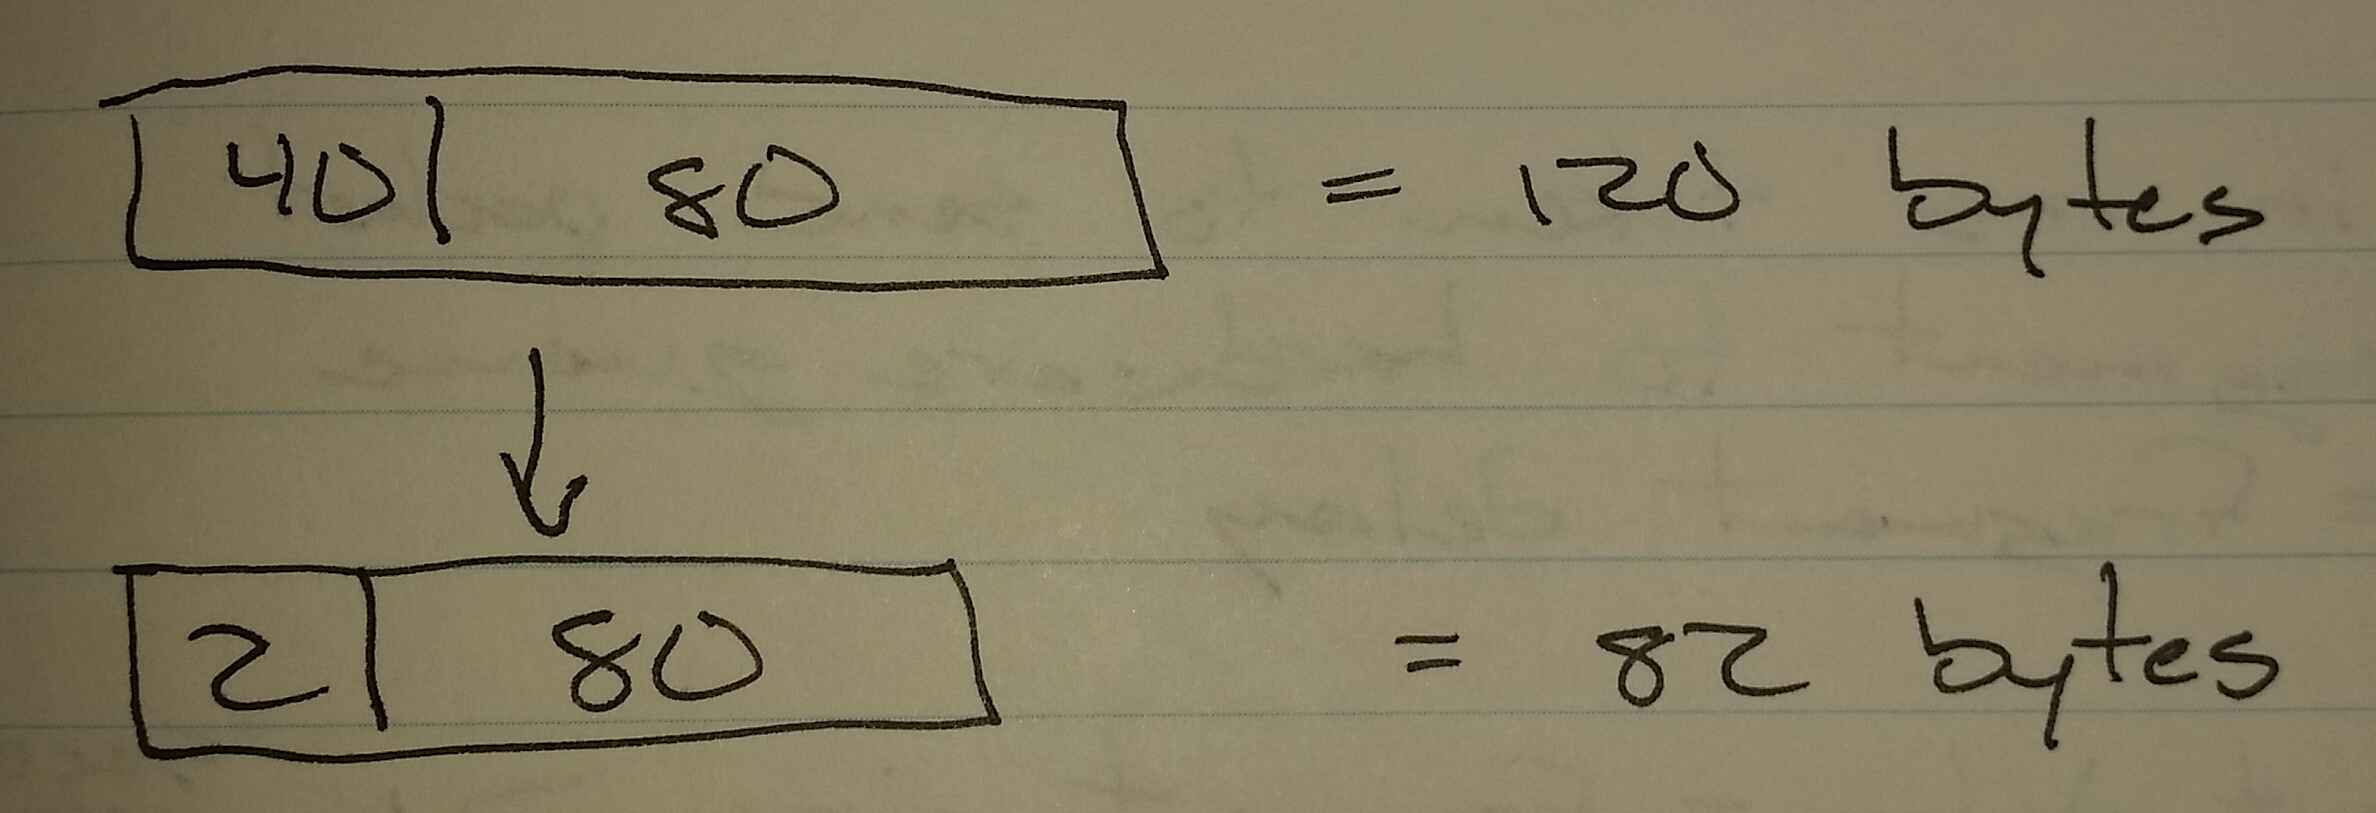 40 80 = 120 bytes
2 80 = 82 bytes